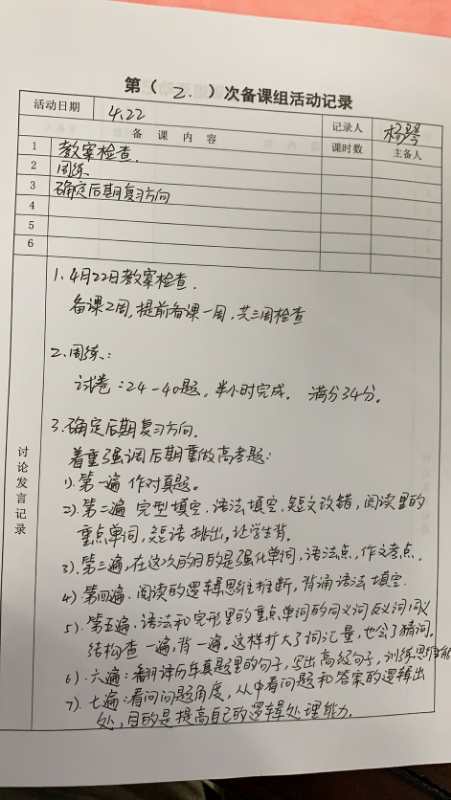 第（ 2. ）次备课组活动记录
活动日期 4.22 记录人 杨琴
备 课 内 容 课时数 主备人
1 教案检查.
2 周练.
3 确定后期复习方向
4
5
6
讨论发言记录
1. 4月22日教案检查.
备课2周,提前备课一周,共三周检查
2.周练.:
试卷:24-40题,半小时完成. 满分34分.
3.确定后期复习方向.
着重强调后期重做高考题:
1).第一遍 作对真题。
2).第二遍 完型填空.语法填空.短文改错,阅读里的
重点单词,短语挑出,让学生背.
3).第三遍,在这次的目的是强化单词,语法点,作文考点.
4).第四遍.阅读的逻辑思维推断,背诵语法填空.
5).第五遍.语法和完形里的重点单词的同义词反义词
结构查一遍,背一遍.这样扩大了词汇量,也会了猜词.
6).六遍:翻译历年真题里的句子,写出高级句子,训练思维
7).七遍:看问问题角度,从中看问题和答案的逻辑出
处,目的是提高自己的逻辑处理能力.